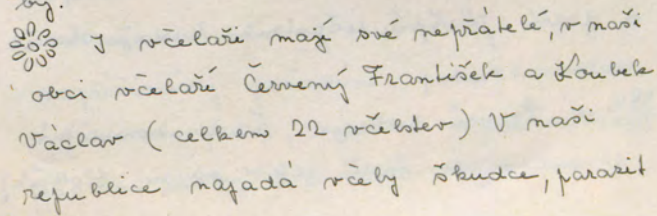 by.
I včelaři mají své nepřátelé, v naši
obci včelaří Červený František a Koubek
Václav ( celkem 22 včelstev ) V naši
republice napadá včely škudce, parazit